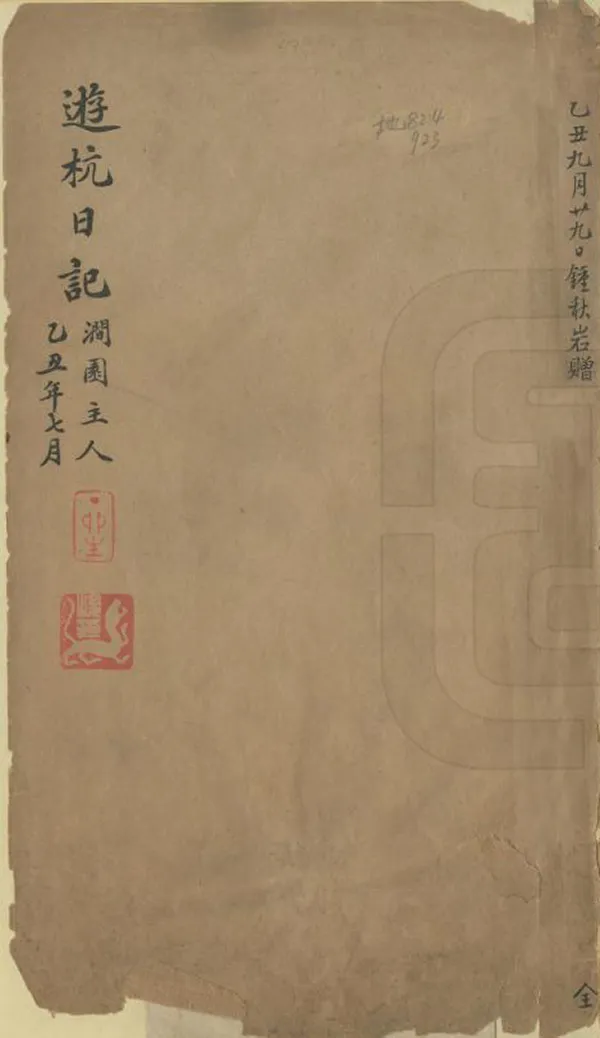 乙丑九月廿九日鍾秋岩贈
全
地8214
923
遊杭日記
澗園主人
乙丑年七月